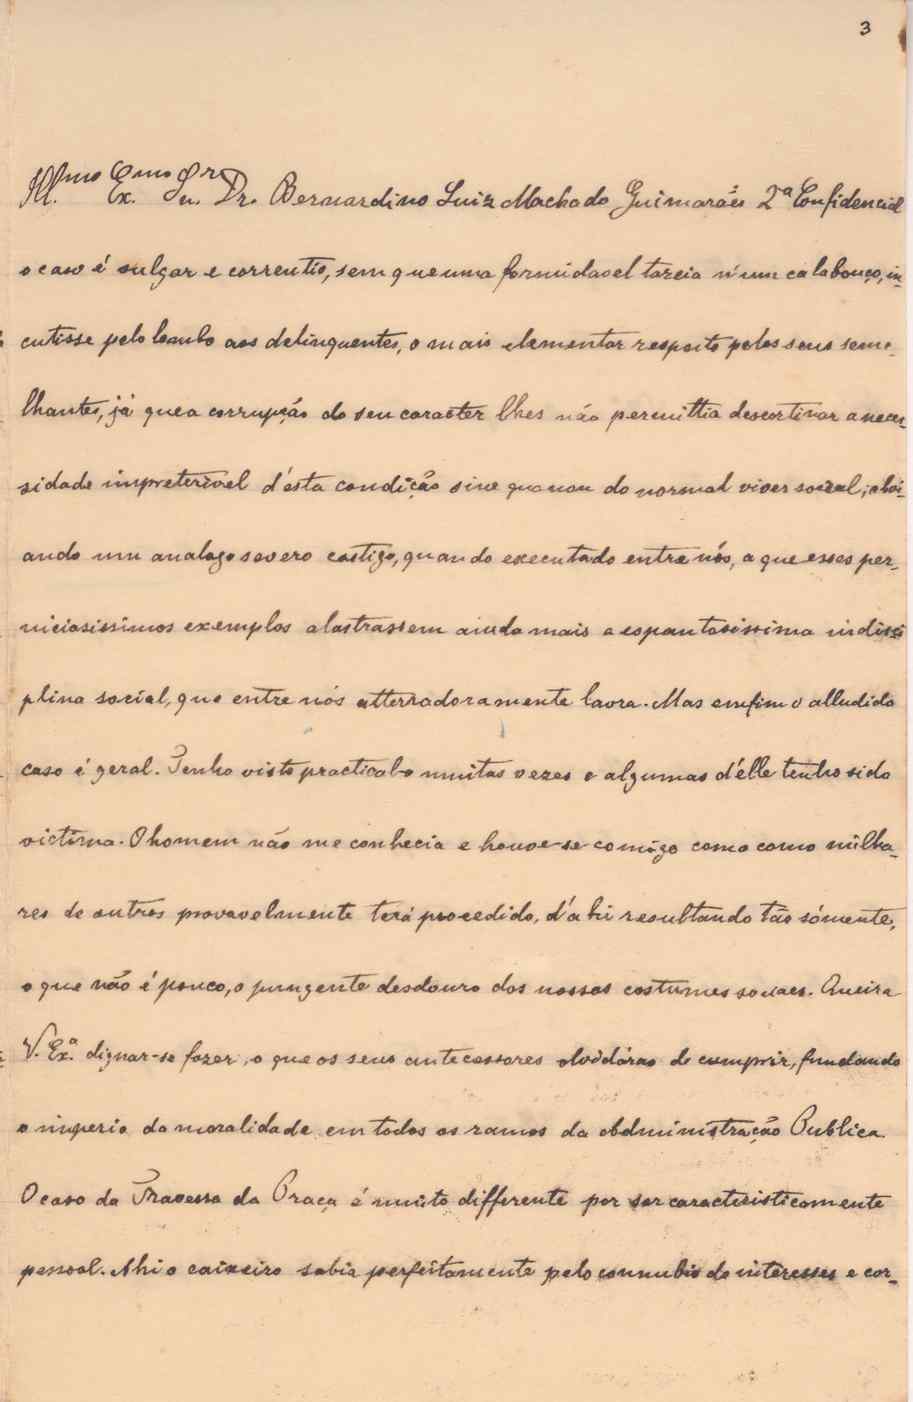 3
Ill.mo Ex.mo Snr. Dr. Bernardino Luiz Machado Guimarães 2ª Confidencial
o caso é vulgar e correntio, sem que uma formidavel tareia n'um calabouço, in-
cutisse pelo lombo aos delinquentes, o mais elementar respeito pelos seus seme-
lhantes, já que a corrupção do seu caracter lhes não permittia descortinar a neces-
sidade impreterivel d'esta condição sine qua non do normal viver social; obvi-
ando um analogo severo castigo, quando executado entre nós, a que esses per-
niciosissimos exemplos alastrassem ainda mais a espantosissima indisci-
plina social, que entre nós atterradoramente lavra. Mas emfim o alludido
caso é geral. Tenho visto practical-o muitas vezes e algumas d'élle tenho sido
victima. O homem não me conhecia e houve-se comigo como como milha-
res de outros provavelmente terá procedido, d'ahi resultando tão sómente,
o que não é pouco, o pungente desdouro dos nossos costumes sociaes. Queira
V. Ex.ª dignar-se fazer, o que os seus antecessores olvidárao de cumprir, fundando
o imperio da moralidade em todos os ramos da abdministração Publica.
O caso da Travessa da Praça é muito differente por ser caracteristicamente
pessoal. Ahi o caixeiro sabia perfeitamente pelo connubio de interesses e cor-